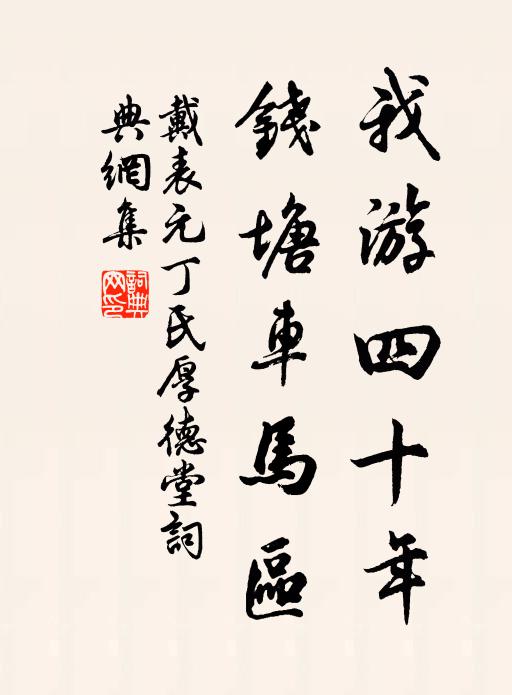 我游四十年
錢塘車馬區
戴表元丁氏厚德堂詞
典網集
詞典网印